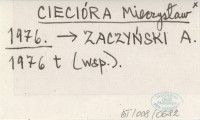 CIECIÓRA Mieczysław x
1976. → ZACZYŃSKI A.
1976 t (wsp.).
BT/008/0682